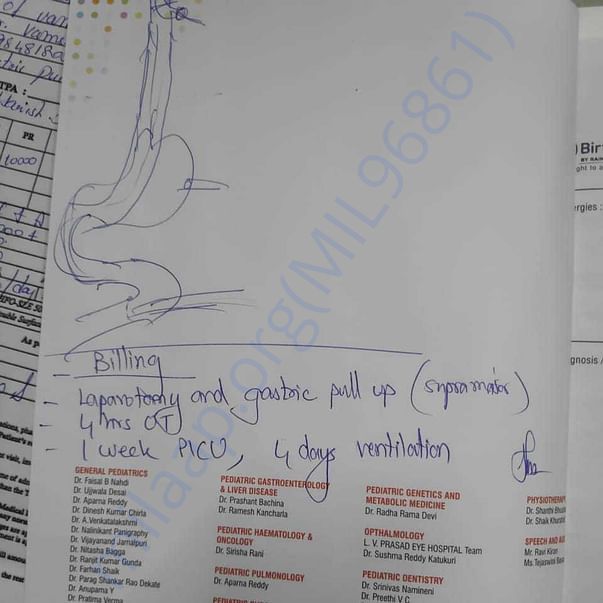 TPA :
PR
10000
/day
Birt
BY RAIN
ght to a
ergies :
gnosis /
milaap.org(MIL96861)
- Billing
- Laparotomy and gastric pull up (supramajor)
- 4 hrs OT
- 1 week PICU, 4 days ventilation
GENERAL PEDIATRICS
Dr. Faisal B Nahdi
Dr. Ujjwala Desai
Dr. Aparna Reddy
Dr. Dinesh Kumar Chirla
Dr. A.Venkatalakshmi
Dr. Nalinikant Panigraphy
Dr. Vijayanand Jamalpuri
Dr. Nitasha Bagga
Dr. Ranjit Kumar Gunda
Dr. Farhan Shaik
Dr. Parag Shankar Rao Dekate
Dr. Anupama Y
Dr. Pratima Verma
PEDIATRIC GASTROENTEROLOGY
& LIVER DISEASE
Dr. Prashant Bachina
Dr. Ramesh Kancharla
PEDIATRIC HAEMATOLOGY &
ONCOLOGY
Dr. Sirisha Rani
PEDIATRIC PULMONOLOGY
Dr. Aparna Reddy
PEDIATRIC GENETICS AND
METABOLIC MEDICINE
Dr. Radha Rama Devi
OPTHALMOLOGY
L. V. PRASAD EYE HOSPITAL Team
Dr. Sushma Reddy Katukuri
PEDIATRIC DENTISTRY
Dr. Srinivas Namineni
Dr. Preethi V C
PHYSIOTHERAP
Dr. Shanthi
Dr. Shaik
SPEECH AND
Mr. Ravi Kiran
Ms Tejaswini